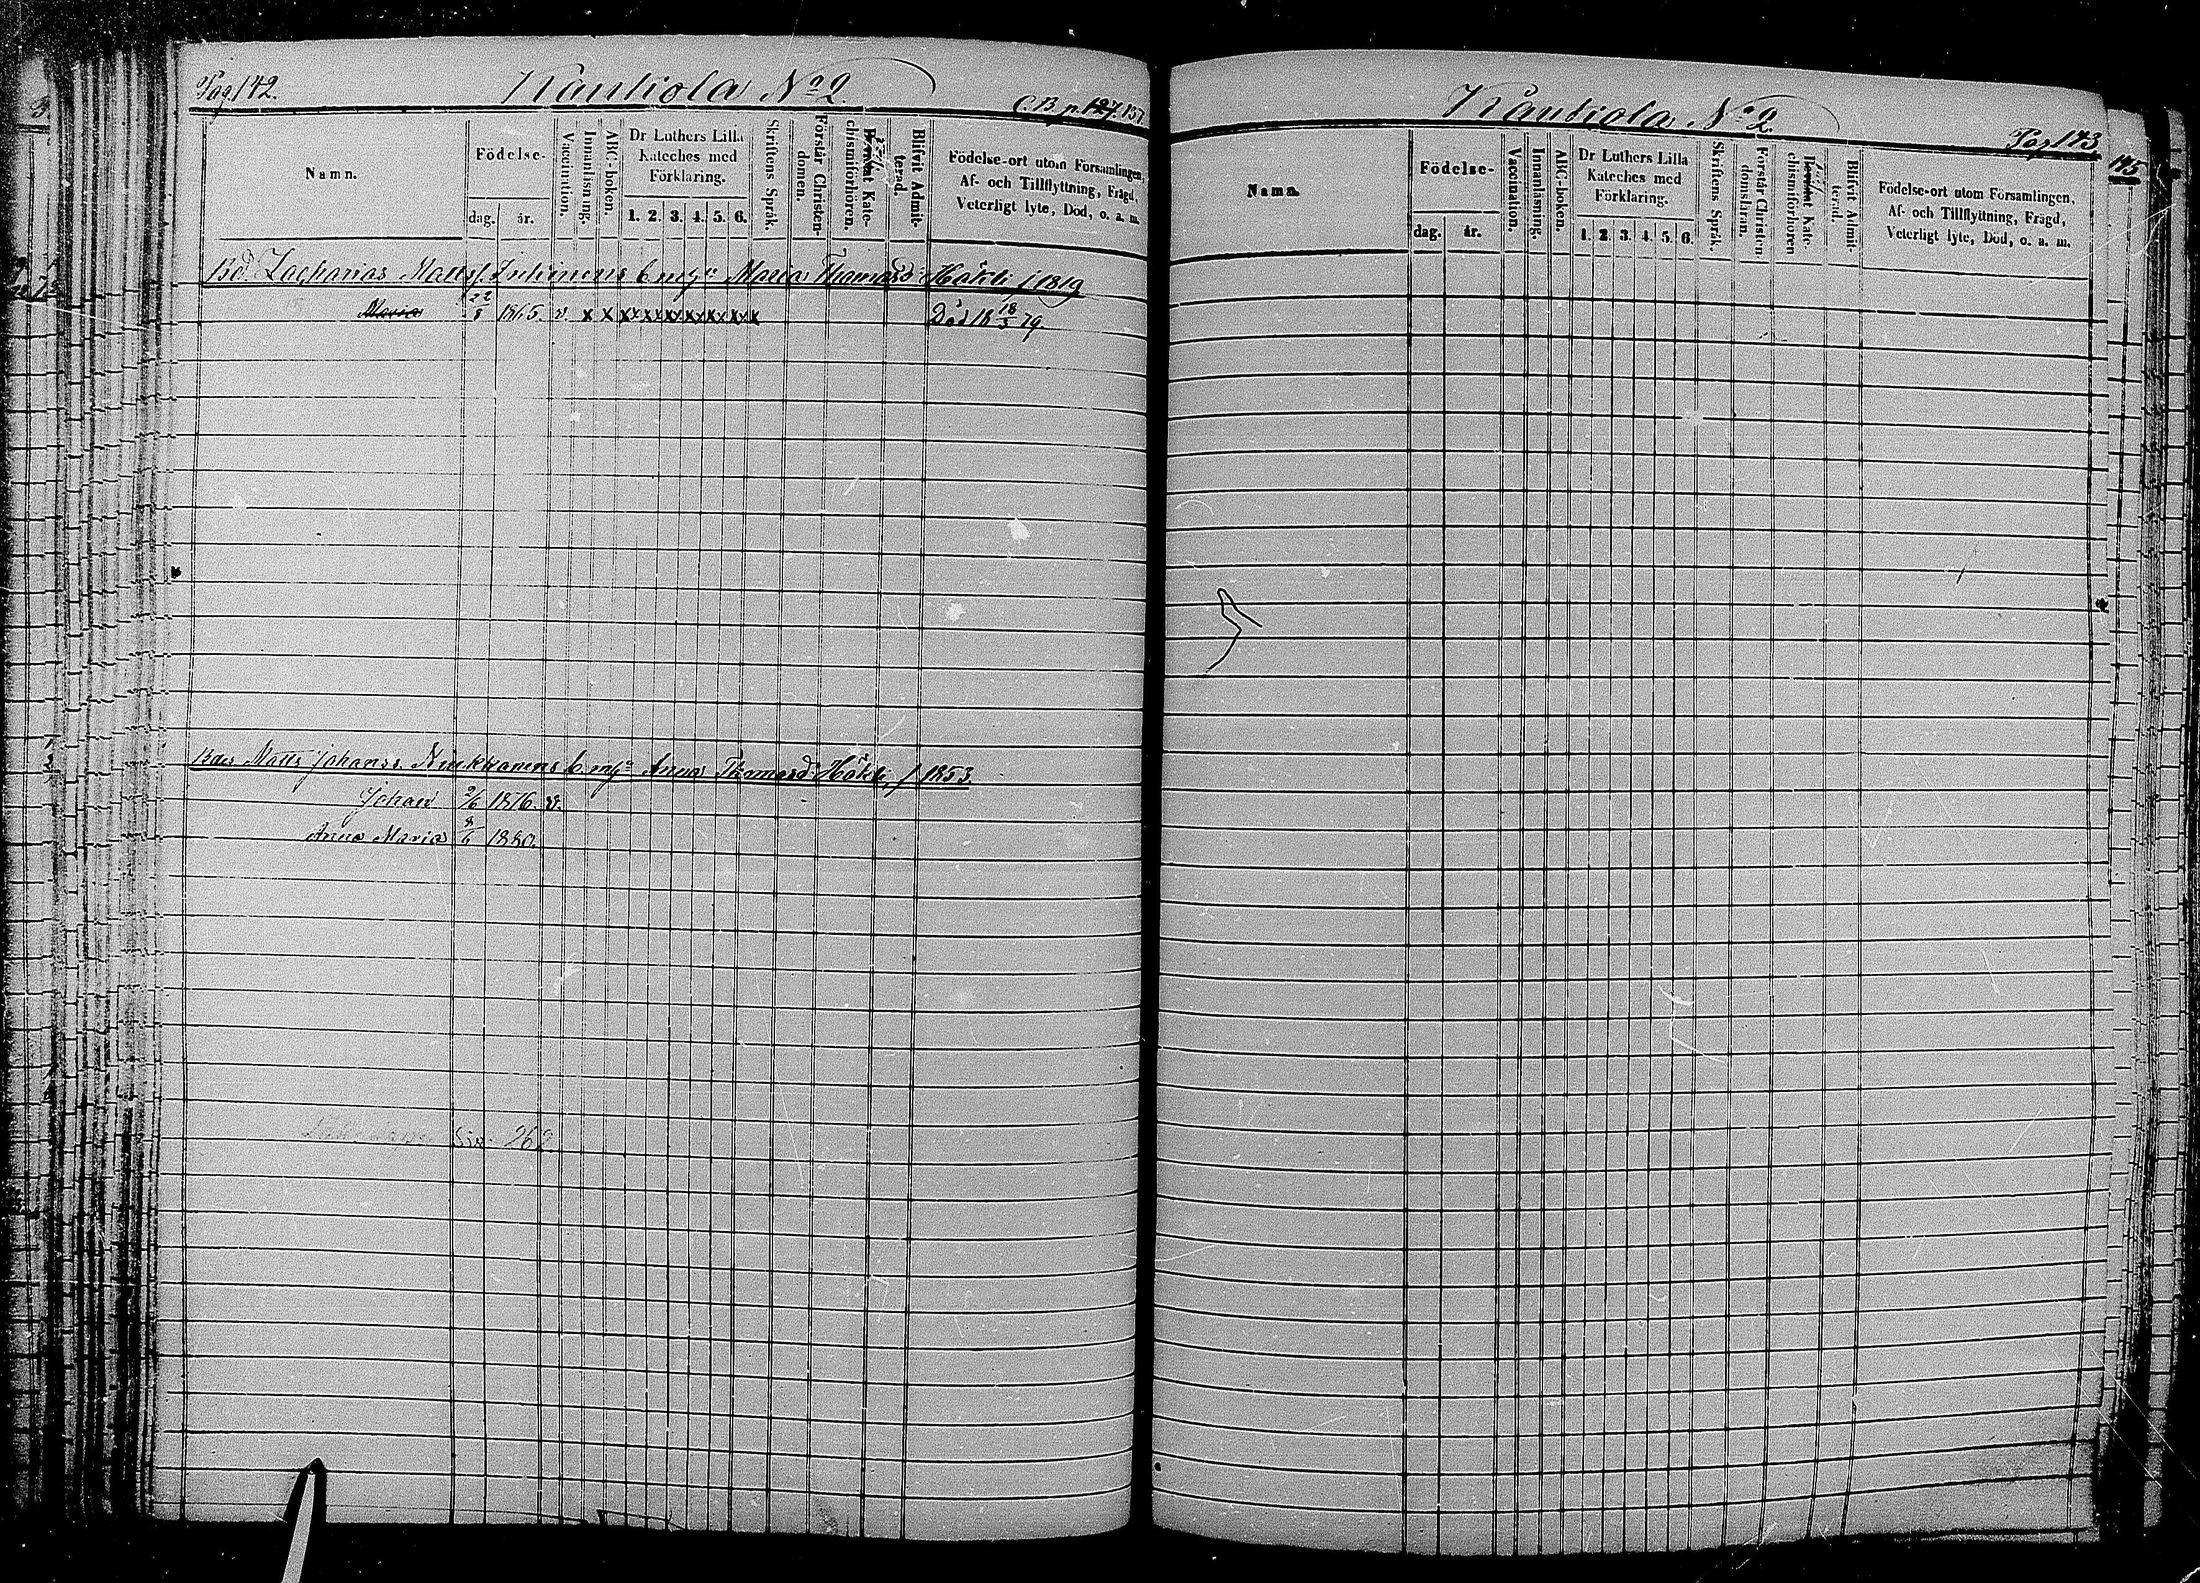 Pag. 142.
Kantiola No 2.
C.B. p. 127. 157
Namn.
Födelse-
dag. år.
Vaccination.
Innanläsning.
ABC-boken.
Dr Luthers Lilla
Kateches med
Förklaring.
1. 2. 3. 4. 5. 6.
Skriftens Språk.
Förstår Christen-
domen.
Bevistat Kate-
chismiförhören.
Blifvit Admit-
terad.
Födelse-ort utom Församlingen,
Af- och Tillflyttning, Frägd,
Veterligt lyte, Död, o. a. m.
Bd. Zacharias Matts. Inkinens b mg Maria Thomasd. Häkli f 1819
Maria 22/8 1865. v. x x xx xx xx xx xx xx x Död 18 18/3 79.
Bdes Matts Johanss. Ninkkanens b mg Anna Thomasd. Häkli, f 1853.
Johan 2/6 1876. v.
Anna Maria 8/6 1880.
Siv. 262
Kantiola No 2.
Pag. 143
Namn.
Födelse-
dag. år.
Vaccination.
Innanläsning.
ABC-boken.
Dr Luthers Lilla
Kateches med
Förklaring.
1. 2. 3. 4. 5. 6.
Skriftens Språk.
Förstår Christen
domsläran.
Bevistat Kate-
chismiförhören
Blifvit Admit-
terad.
Födelse-ort utom Församlingen,
Af- och Tillflyttning, Frägd,
Veterligt lyte, Död, o. a. m.
145